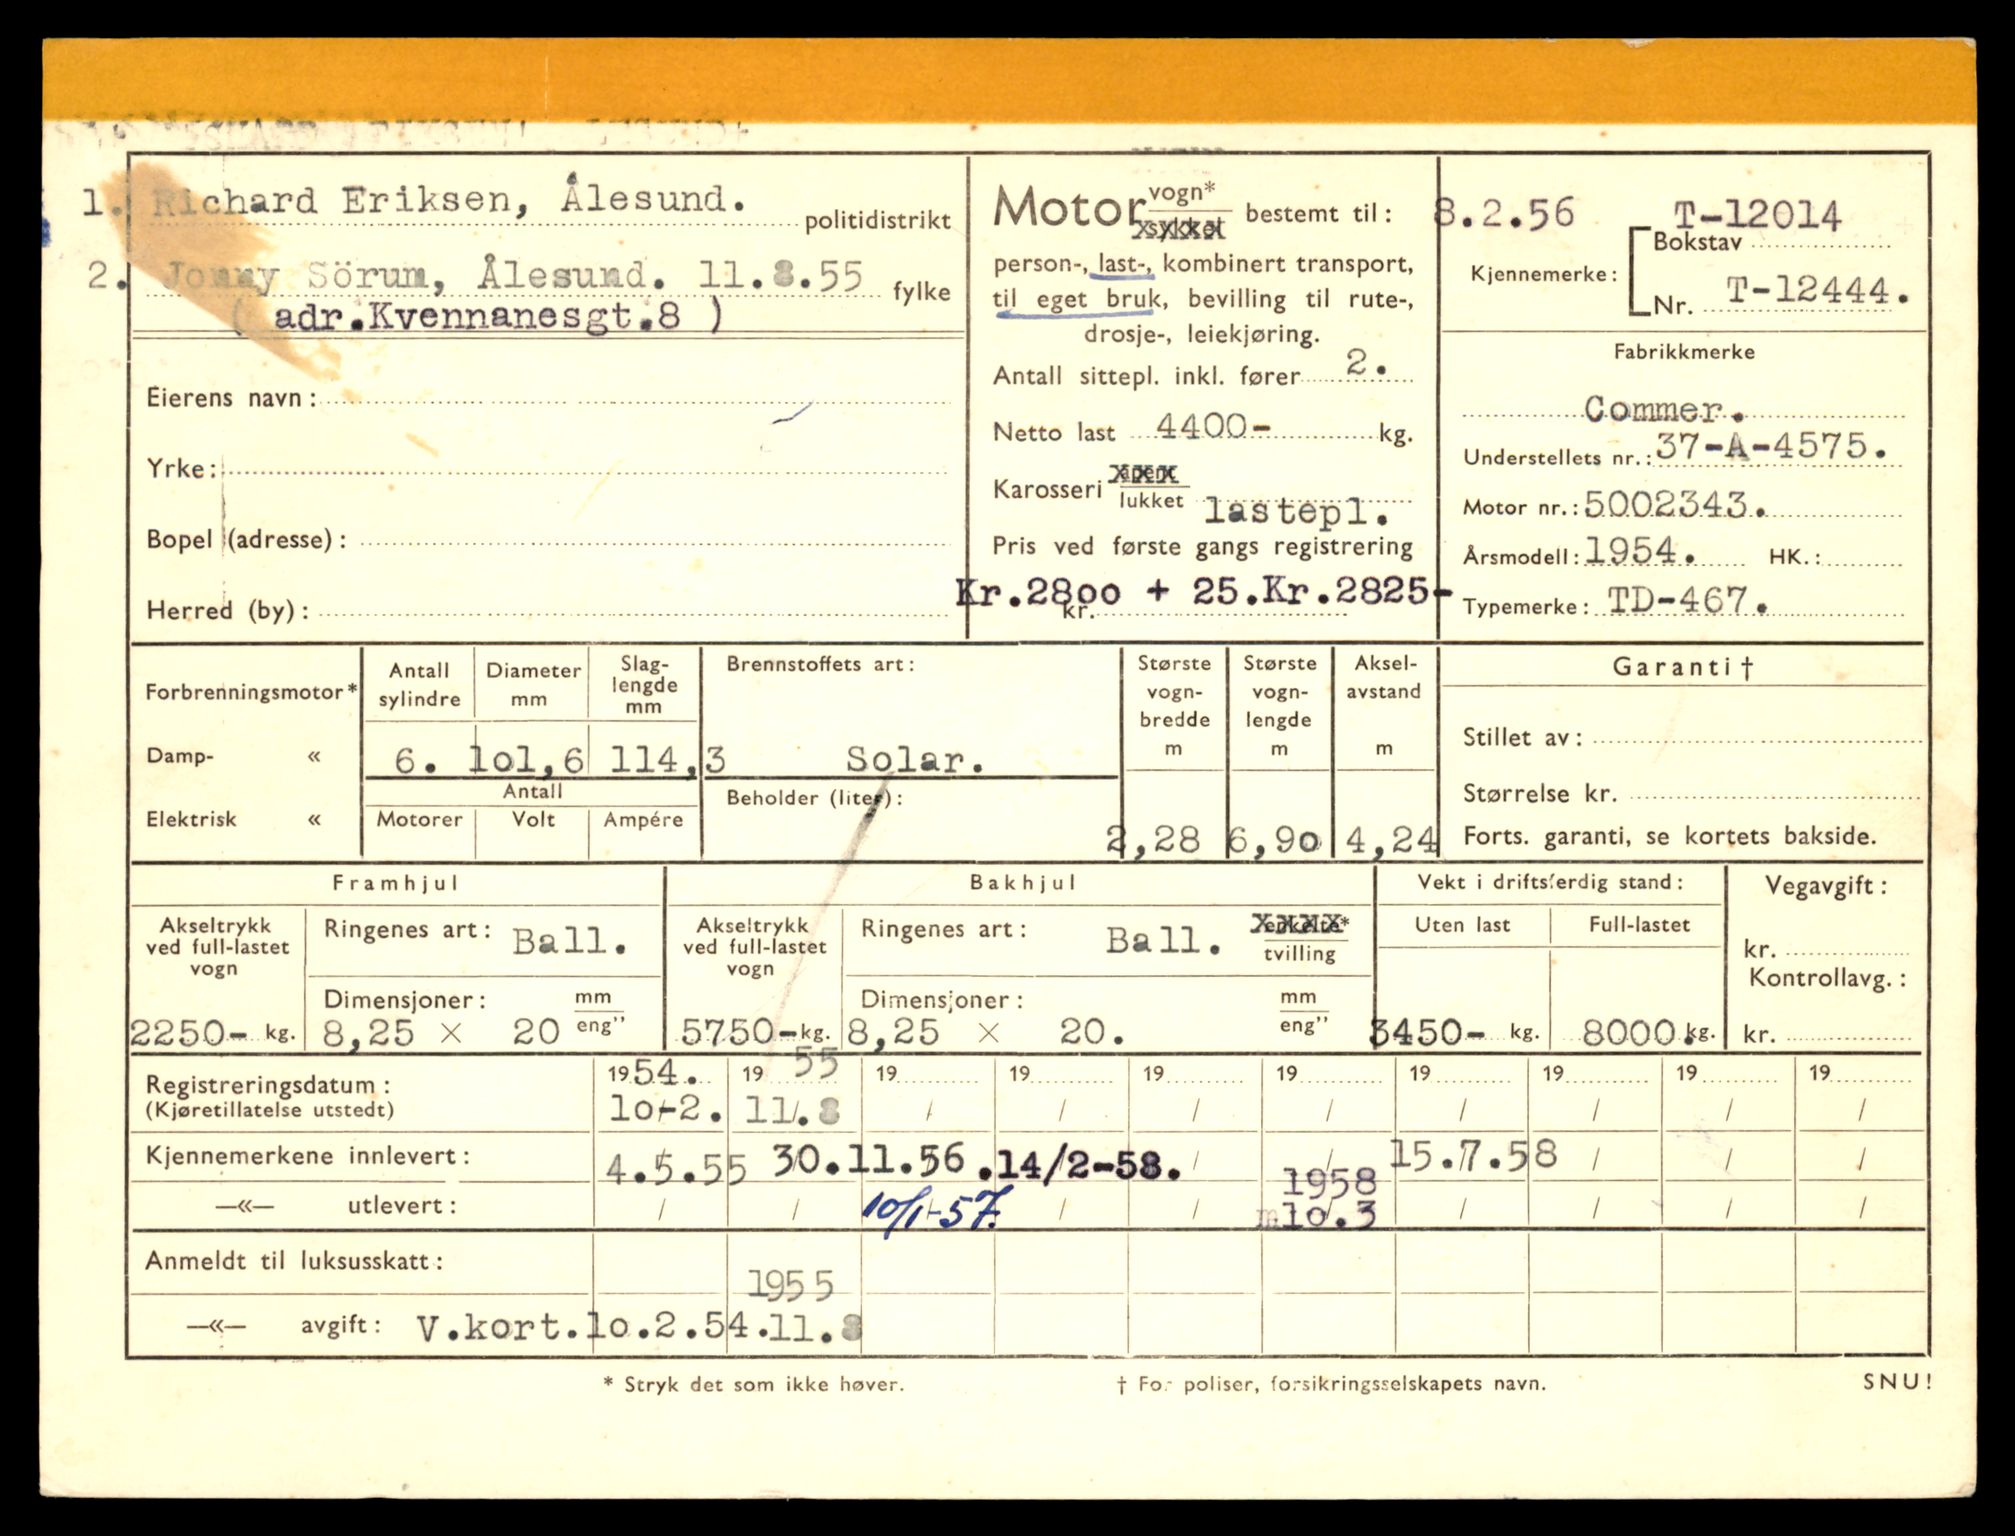 1. Richard Eriksen, Ålesund. politidistrikt
2. Jonny Sörum, Ålesund. 11.8.55 fylke
( adr.Kvennanesgt.8 )
Eierens navn :
Yrke :
Bopel (adresse) :
Herred (by) :
Motor vogn* bestemt til :
sykkel
person-, last-, kombinert transport,
til eget bruk, bevilling til rute-,
drosje-, leiekjøring.
Antall sittepl. inkl. fører 2.
Netto last 4400- kg.
Karosseri åpent
lukket lastepl.
Pris ved første gangs registrering
Kr.2800 + 25.Kr.2825-
kr.
8.2.56 T-12014
Kjennemerke : Bokstav
Nr. T-12444.
Fabrikkmerke
Commer.
Understellets nr. : 37-A-4575.
Motor nr. : 5002343.
Årsmodell : 1954. HK. :
Typemerke : TD-467.
Forbrenningsmotor*
Damp- «
Elektrisk «
Antall sylindre
Diameter mm
Slag-lengde mm
6. 101,6 114,3
Antall
Motorer Volt Ampére
Brennstoffets art :
Solar.
Beholder (liter) :
Største vogn-bredde m
Største vogn-lengde m
Aksel-avstand m
2,28 6,90 4,24
Garanti †
Stillet av :
Størrelse kr.
Forts. garanti, se kortets bakside.
Framhjul
Akseltrykk ved full-lastet vogn
2250- kg.
Ringenes art : Ball.
Dimensjoner : mm
8,25 × 20 eng”
Bakhjul
Akseltrykk ved full-lastet vogn
5750- kg.
Ringenes art : Ball. enkelte*
tvilling
Dimensjoner : mm
8,25 × 20. eng”
Vekt i driftsferdig stand :
Uten last Full-lastet
3450- kg. 8000. kg.
Vegavgift :
kr.
Kontrollavg. :
kr.
Registreringsdatum : 1954. 19 55 19 19 19 19 19 19 19 19
(Kjøretillatelse utstedt) 10-2. 11.8 / / / / / / / /
Kjennemerkene innlevert : 4.5.55 30.11.56 .14/2-58. / / 15.7.58 / / /
1958
—«— utlevert : / / 10/1-57. / / m10.3 / / / /
Anmeldt til luksusskatt :
1955
—«— avgift : V.kort.10.2.54.11.8
* Stryk det som ikke høver. † For poliser, forsikringsselskapets navn. SNU!